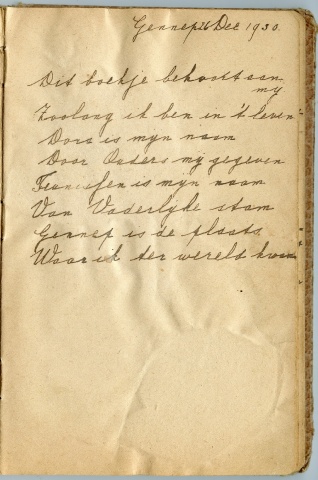 Gennep 26 Dec 1930.
Dit boekje behoort aan
my
Zoolang ik ben in 't leven
Dora is mijn naam
Door Ouders mij gegeven
is mijn naam
Van Vaderlyke stam
Gennep is de plaats
Waar ik ter wereld kwam